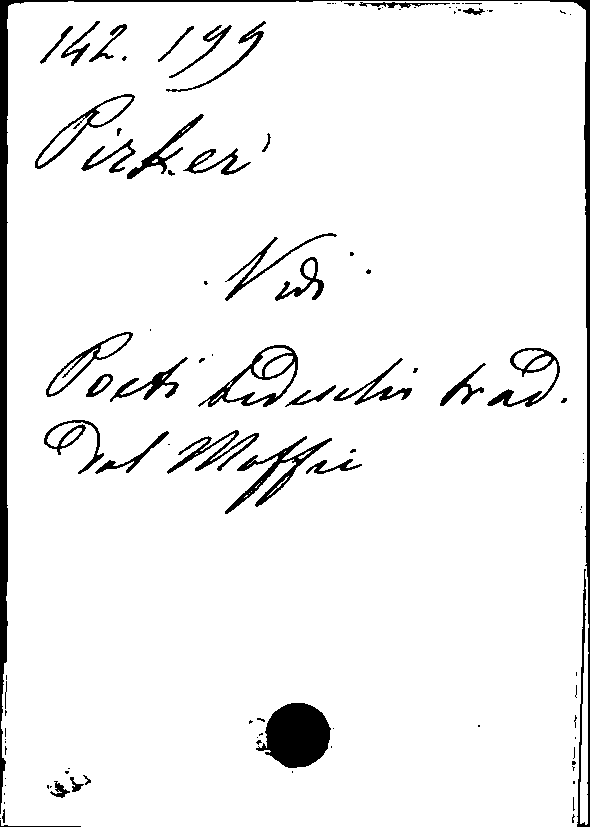 142. 199
Pirker
Vedi
Poeti tedeschi trad.
dal Maffei